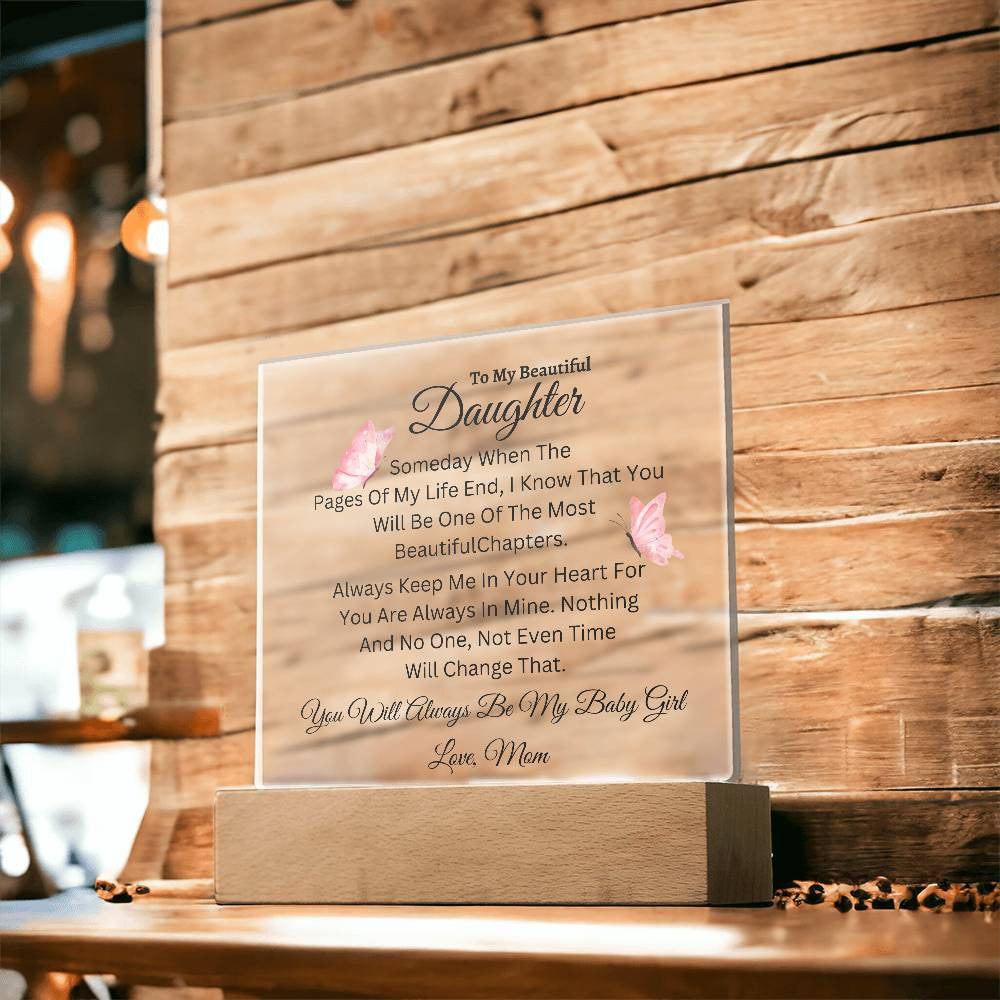 To My Beautiful
Daughter
Someday When The
Pages Of My Life End, I Know That You
Will Be One Of The Most
BeautifulChapters.
Always Keep Me In Your Heart For
You Are Always In Mine. Nothing
And No One, Not Even Time
Will Change That.
You Will Always Be My Baby Girl
Love, Mom